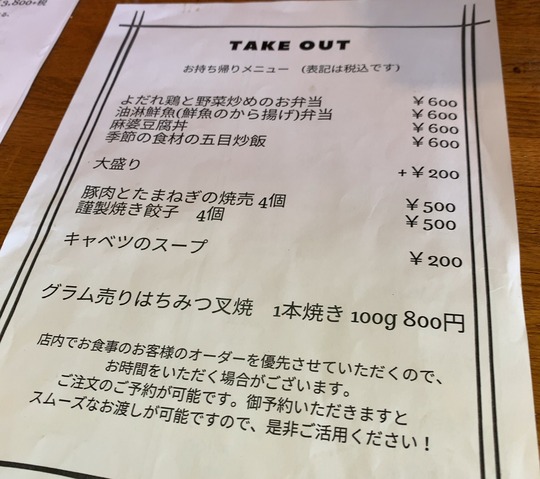 3,800+税
TAKE OUT
お持ち帰りメニュー (表記は税込です)
よだれ鶏と野菜炒めのお弁当 ¥600
油淋鮮魚(鮮魚のから揚げ)弁当 ¥600
麻婆豆腐丼 ¥600
季節の食材の五目炒飯 ¥600
大盛り +¥200
豚肉とたまねぎの焼売 4個 ¥500
謹製焼き餃子 4個 ¥500
キャベツのスープ ¥200
グラム売りはちみつ叉焼 1本焼き 100g 800円
店内でお食事のお客様のオーダーを優先させていただくので、
お時間をいただく場合がございます。
ご注文のご予約が可能です。御予約いただきますと
スムーズなお渡しが可能ですので、是非ご活用ください！